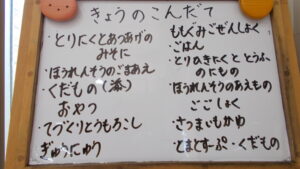 きょうのこんだて
・とりにくとあつあげの
みそに
・ほうれんそうのごまあえ
・くだもの(添)
おやつ
・てづくりとうもろこし
ぎゅうにゅう
ももぐみごぜんしょく
・ごはん
・とりのきにくととうふ
のにもの
・ほうれんそうのあえもの
ごごしょく
・さつまいもかゆ
・とまとすーぷ・くだもの